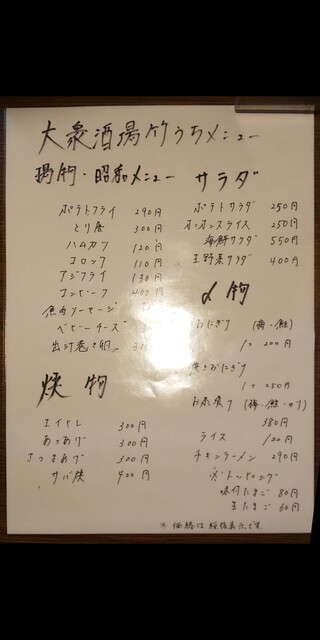 大衆酒場竹うちメニュー
揚物・昭和メニュー
ポテトフライ 290円
とり唐 300円
ハムカツ 120円
コロッケ 110円
アジフライ 130円
コンビーフ 400円
魚肉ソーセージ
ベビーチーズ
出汁巻き卵
焼物
エイヒレ 300円
あつあげ 300円
さつまあげ 300円
サバ焼 400円
サラダ
ポテトサラダ 250円
オニオンスライス 250円
海鮮サラダ 550円
生野菜サラダ 400円
〆物
おにぎり (梅・鮭)
1ヶ 200円
焼きおにぎり
1ヶ 250円
お茶漬け (梅・鮭・のり)
380円
ライス 120円
チキンラーメン 290円
※トッピング
味付たまご 80円
生たまご 60円
※価格は税抜表示です。